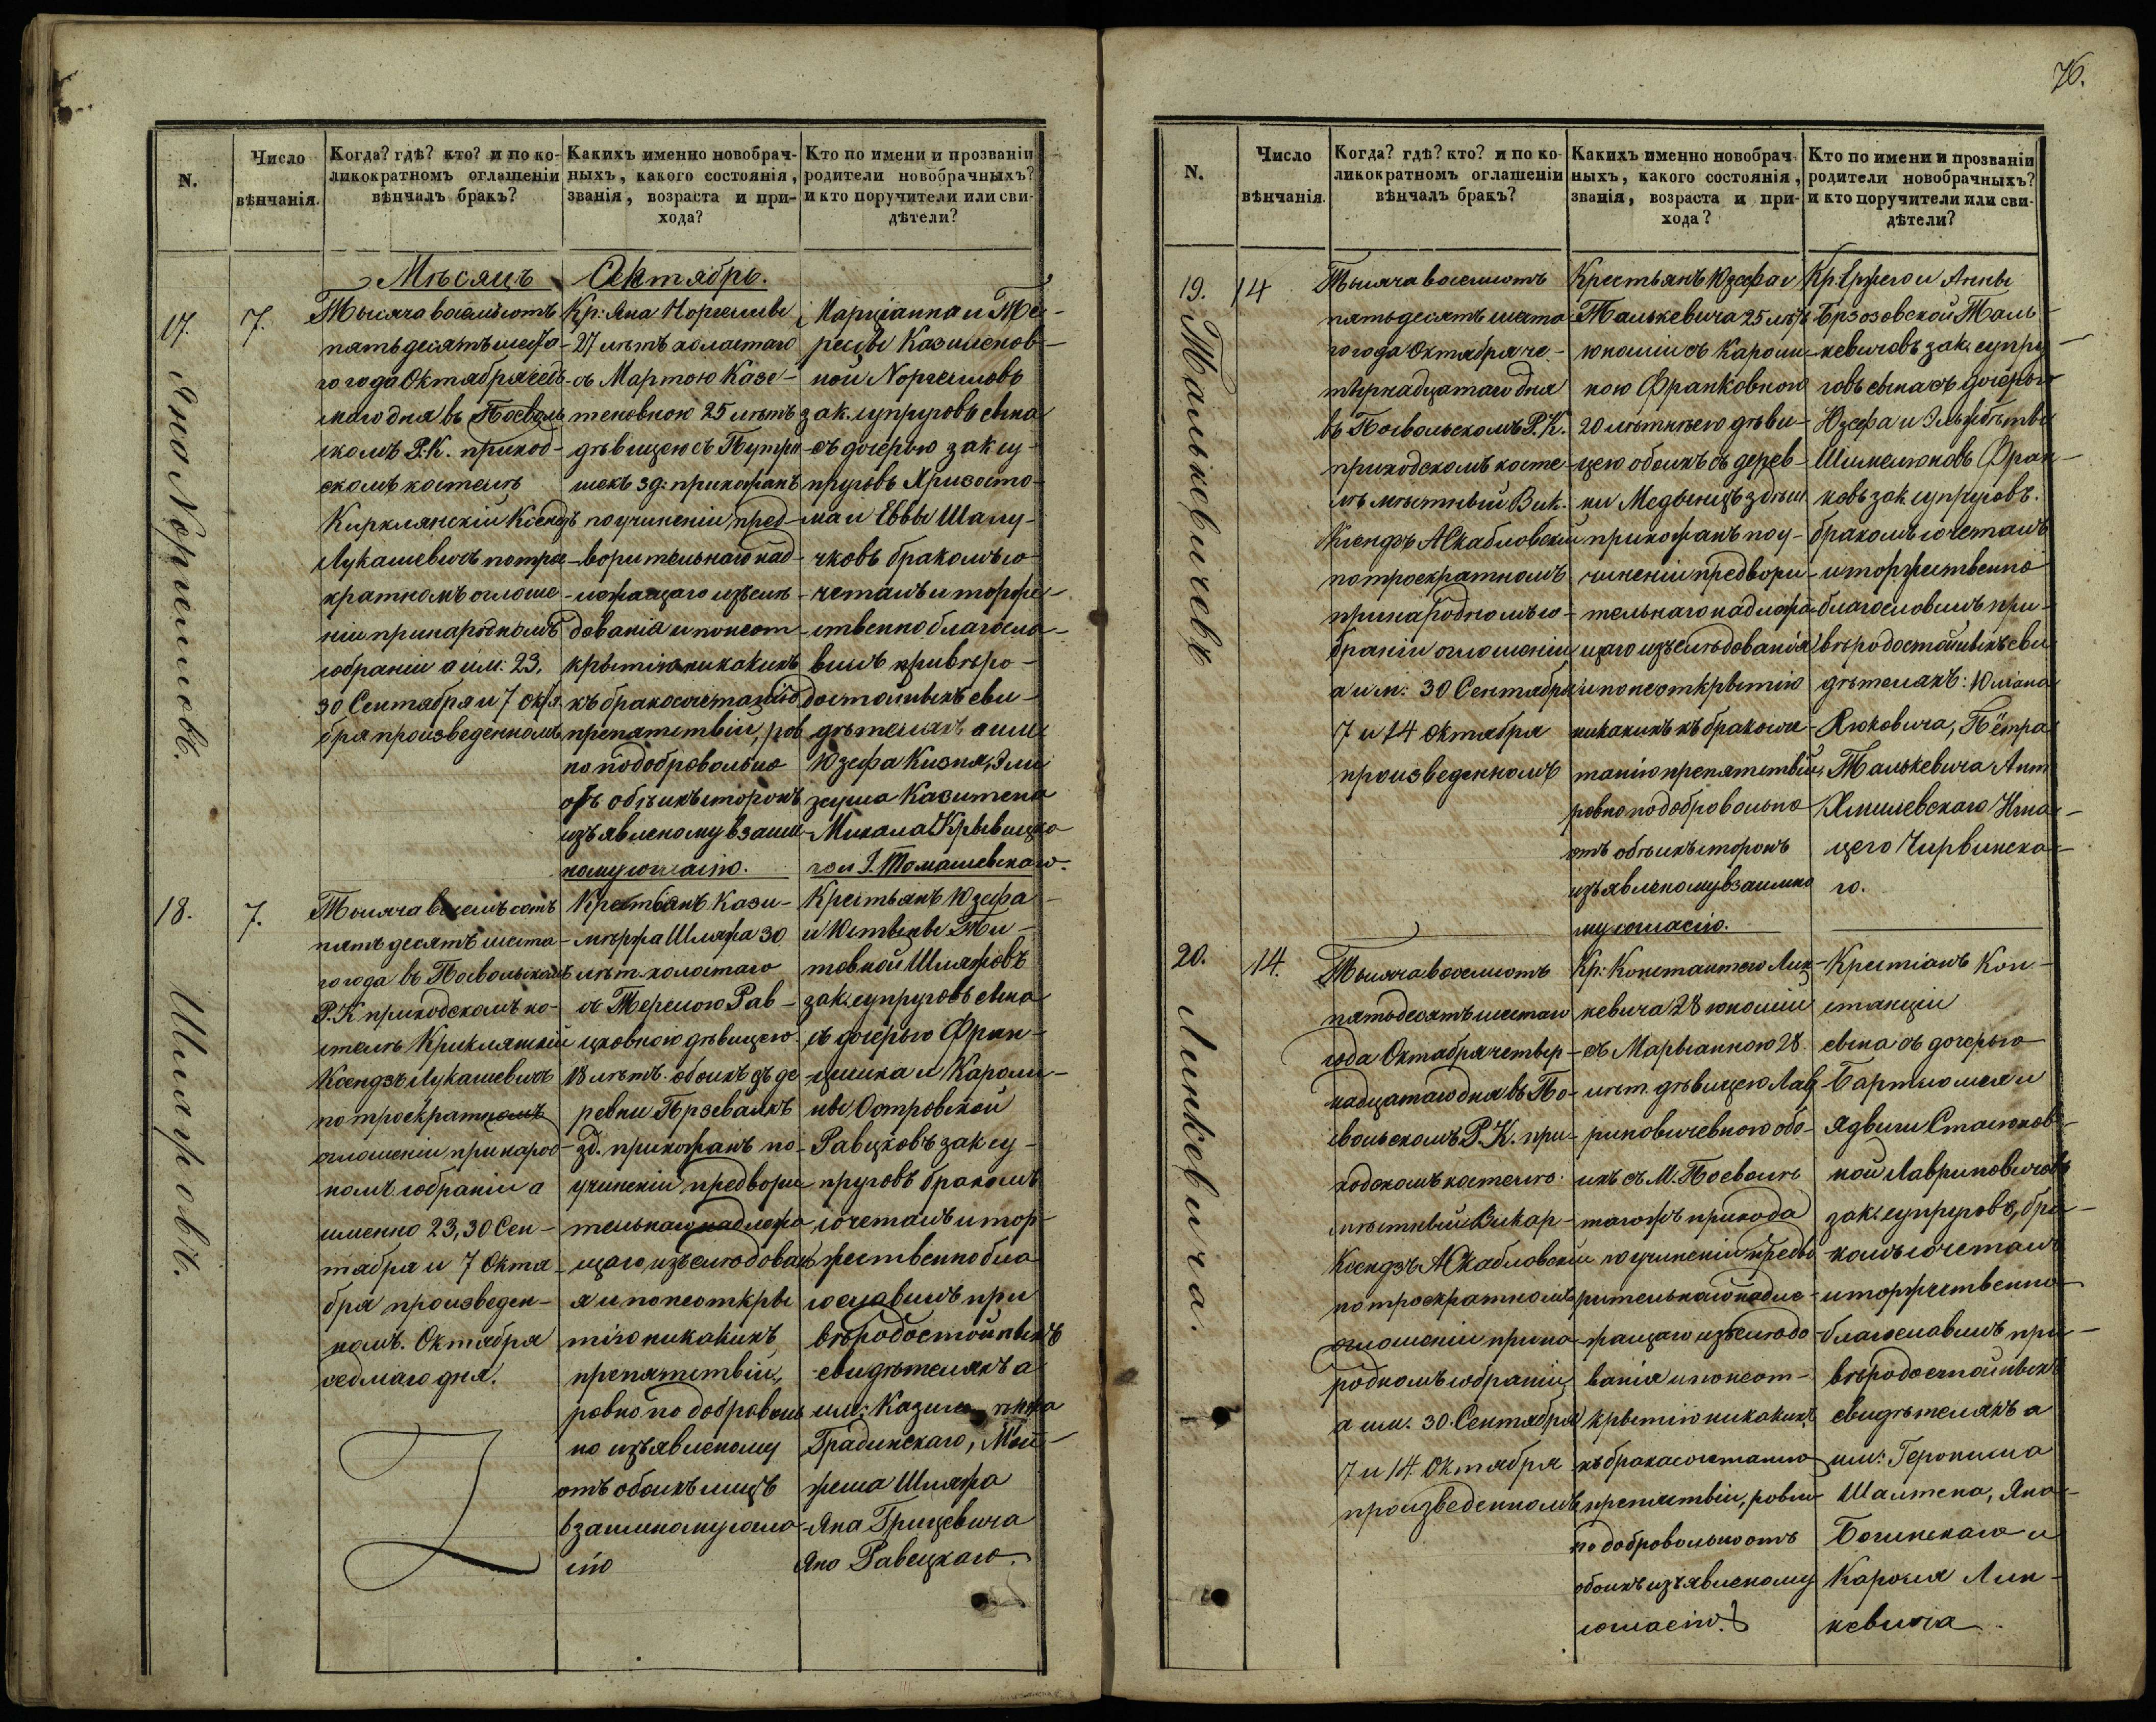 76.
N.
Число
вѣнчанія.
Когда? гдѣ? кто? и по ко-
ликократномъ оглашеніи
вѣнчалъ бракъ?
Какихъ именно новобрач-
ныхъ, какого состоянія,
званія, возраста и при-
хода?
Кто по имени и прозваніи
родители новобрачныхъ?
и кто поручители или сви-
дѣтели?
Мѣсяцъ Октябрь.
17.
7.
Яна Норгеловъ.
Тысяча восемьсотъ
пятьдесятъ шеста-
го года Октября седь-
маго дня въ Посволь
скомъ Р. К. приход-
скомъ костелѣ
Ксендзъ
Лукашевичъ потрое
кратномъ оглаше
ніи принародномъ
собраніи а им: 23,
30 Сентября и 7 Октя
бря произведенномъ
Кр: Яна
27 лѣтъ холостаго
съ Мартою Казе-
теновною 25 лѣтъ
дѣвицею съ
зд: прихожанъ
по учиненіи пред-
ворительнаго над-
лежащаго изслѣ
дованія и понеот
крытію никакихъ
къ бракосочетанію
препятствій, ров
но по добровольно
отъ обѣихъ сторонъ
изъявленому взаим
ному согласію.
Марціанна и Те-
ресы Казиленов-
ной Норгеловъ
зак. супруговъ сына
съ дочерью зак су-
пруговъ Хризосто-
ма и Еввы Шалу-
чковъ бракомъ со
четалъ и торже-
ственно благосло-
вилъ при вѣро-
достойныхъ сви-
дѣтеляхъ а им
Юзефа
Казитена
Михала
го и І. Томашевскаго.
18.
7.
Шляжовъ.
Тысяча восемьсотъ
пятьдесятъ шеста-
го года въ Посвольскомъ
Р. К приходскомъ ко-
стелѣ
Ксендзъ Лукашевичъ
по троекратномъ
оглашеніи принарод-
номъ собраніи а
именно 23, 30 Сен-
тября и 7 Октя-
бря произведен-
номъ. Октября
седмаго дня.
Крестьянъ Кази-
мѣржа Шляжа 30
лѣт. холостаго
съ Терезою Рав-
цковною дѣвицею
18 лѣтъ. обоихъ съ де
ревни
зд. прихожанъ по-
учиненіи предвори
тельнаго надлежа
щаго изслѣдован
я и понеоткры
тію никакихъ
препятствій,
ровно по доброволь
но изъявленому
отъ обоихъ лицъ
взаимному согла
сію
Крестьянъ Юзефа
и Юстыны Ти-
товной Шляжовъ
зак. супруговъ сына
съ дочерью Фран-
цишка и Кароли-
ны Островской
Равцковъ зак су-
пруговъ бракомъ
сочеталъ и тор-
жественно бла
гославилъ при
вѣродостойныхъ
свидѣтеляхъ а
им:
Градинскаго, Мат-
Шляжа
Яна Грицевича
Яна Равецкаго.
N.
Число
вѣнчанія.
Когда? гдѣ? кто? и по ко-
ликократномъ оглашеніи
вѣнчалъ бракъ?
Какихъ именно новобрач-
ныхъ, какого состоянія,
званія, возраста и при-
хода?
Кто по имени и прозваніи
родители новобрачныхъ?
и кто поручители или сви-
дѣтели?
19.
14
Талькевичовъ
Тысяча восемьсотъ
пятьдесятъ шеста
го года Октября че-
тырнадцатаго дня
въ Посвольскомъ Р. К.
приходскомъ косте-
лѣ мѣстный Вик.
Ксендзъ А Скабловскій
по троекратномъ
принародномъ со-
браніи оглашеніи
а им: 30 Сентября
7 и 14 Октября
произведенномъ
Крестьянъ Юзефа
Талькевича 25 лѣтъ
юноши съ Кароли-
ною Франковною
20 лѣтнею дѣви-
цею обоихъ съ дерев-
ни
прихожанъ по у-
чиненіи предвори-
тельнаго надлежа-
щаго изслѣдованія
и понеоткрытію
никакихъ къ бракосоче
танію препятствій
ровно по добровольно
отъ обѣихъ сторонъ
изъявленому взаимно
му согласію.
Кр: Ержего и Анны
Брзозовской Таль-
кевичовъ зак. супру-
говъ сына съ дочерью
Юзефа и Эльжбѣты
Фран-
ковъ зак супруговъ.
бракомъ сочеталъ
и торжественно
благословилъ при-
вѣродостойныхъ сви
дѣтеляхъ: Юліана
Пётра
Талькевича Ант.
Игна-
цего Чирвинска-
го.
20.
14.
Линкевича.
Тысяча восемьсотъ
пятьдесятъ шестаго
года Октября четыр-
надцатаго дня въ По-
свольскомъ Р. К. при-
ходскомъ костелѣ
мѣстный Викар-
Ксендзъ А Скабловскій
по троекратномъ
оглашеніи прина
родномъ собраніи
а им. 30 Сентября
7 и 14 Октября
произведенномъ
Кр: Константего Лин-
кевича 28 юноши
съ Марыанною 28
лѣт. дѣвицею Лав
риновичевною обо-
ихъ съ М. Посволь
тогожъ прихода
по учиненіи предво
рительнаго надле-
жащаго изслѣдо
ванія и понеот-
крытію никакихъ
къ бракасочетанію
препятствій, ровно
по добровольно отъ
обоихъ изъявленому
согласію.
Крестіанъ Кон-
станціи
сына съ дочерью
Бартломея и
Ядвиги
ной Лавриновичовъ
зак. супруговъ, бра-
комъ сочеталъ
и торжественно
благославилъ при-
вѣродостойныхъ
свидѣтеляхъ а
им: Геронима
Яна
и
Кароля Лин-
кевича